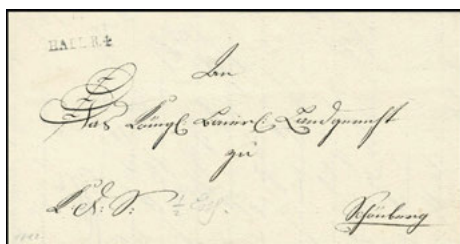 HALS R 4
An
Das Königl: Baier: Landgericht
zu
K: D: S:
Schönberg